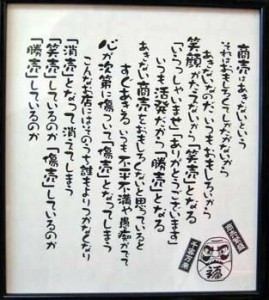 商売はあきないという
それはおもしろくてしかたがないから
あきないなのだ いつもおもしろいから
笑顔がたえないから「笑売」となる
「いらっしゃいませ」「ありがとうございます」
いつも活発だから「勝売」となる
あきない商売をおもしろくないと思っていると
すぐあきる いつも不平不満や愚痴がでて
心が次第に傷ついて「傷売」となってしまう
こんなお店にはそのうち誰もよりつかなくなり
「消売」となって消えてしまう
「笑売」しているのか「傷売」しているのか
「勝売」しているのか
福